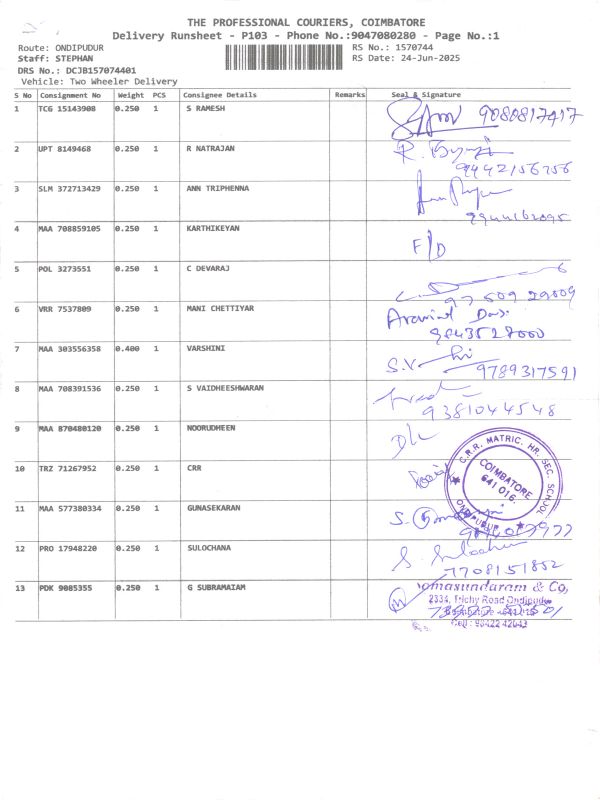 THE PROFESSIONAL COURIERS, COIMBATORE
Delivery Runsheet - P103 - Phone No.:9047080280 - Page No.:1
Route: ONDIPUDUR RS No.: 1570744
Staff: STEPHAN RS Date: 24-Jun-2025
DRS No.: DCJB157074401
Vehicle: Two Wheeler Delivery
S No Consignment No Weight PCS Consignee Details Remarks Seal & Signature
1 TCG 15143908 0.250 1 S RAMESH 9080817417
2 UPT 8149468 0.250 1 R NATRAJAN
9442156756
3 SLM 372713429 0.250 1 ANN TRIPHENNA
4 MAA 708859105 0.250 1 KARTHIKEYAN
F/D
5 POL 3273551 0.250 1 C DEVARAJ
97509 29009
6 VRR 7537809 0.250 1 MANI CHETTIYAR Aravind
9843527000
7 MAA 303556358 0.400 1 VARSHINI
9789317591
8 MAA 708391536 0.250 1 S VAIDHEESHWARAN
9381044548
9 MAA 870480120 0.250 1 NOORUDHEEN D/L
C.R.R. MATRIC. HR. SEC. SCHOOL
COIMBATORE
641 016.
ONDIPUDUR
10 TRZ 71267952 0.250 1 CRR
11 MAA 577380334 0.250 1 GUNASEKARAN
12 PRO 17948220 0.250 1 SULOCHANA
7708151852
13 PDK 9085355 0.250 1 G SUBRAMAIAM
omasundaram & Co,
2334, Trichy Road Ondipudur
Coimbatore
Cell : 90422 42043